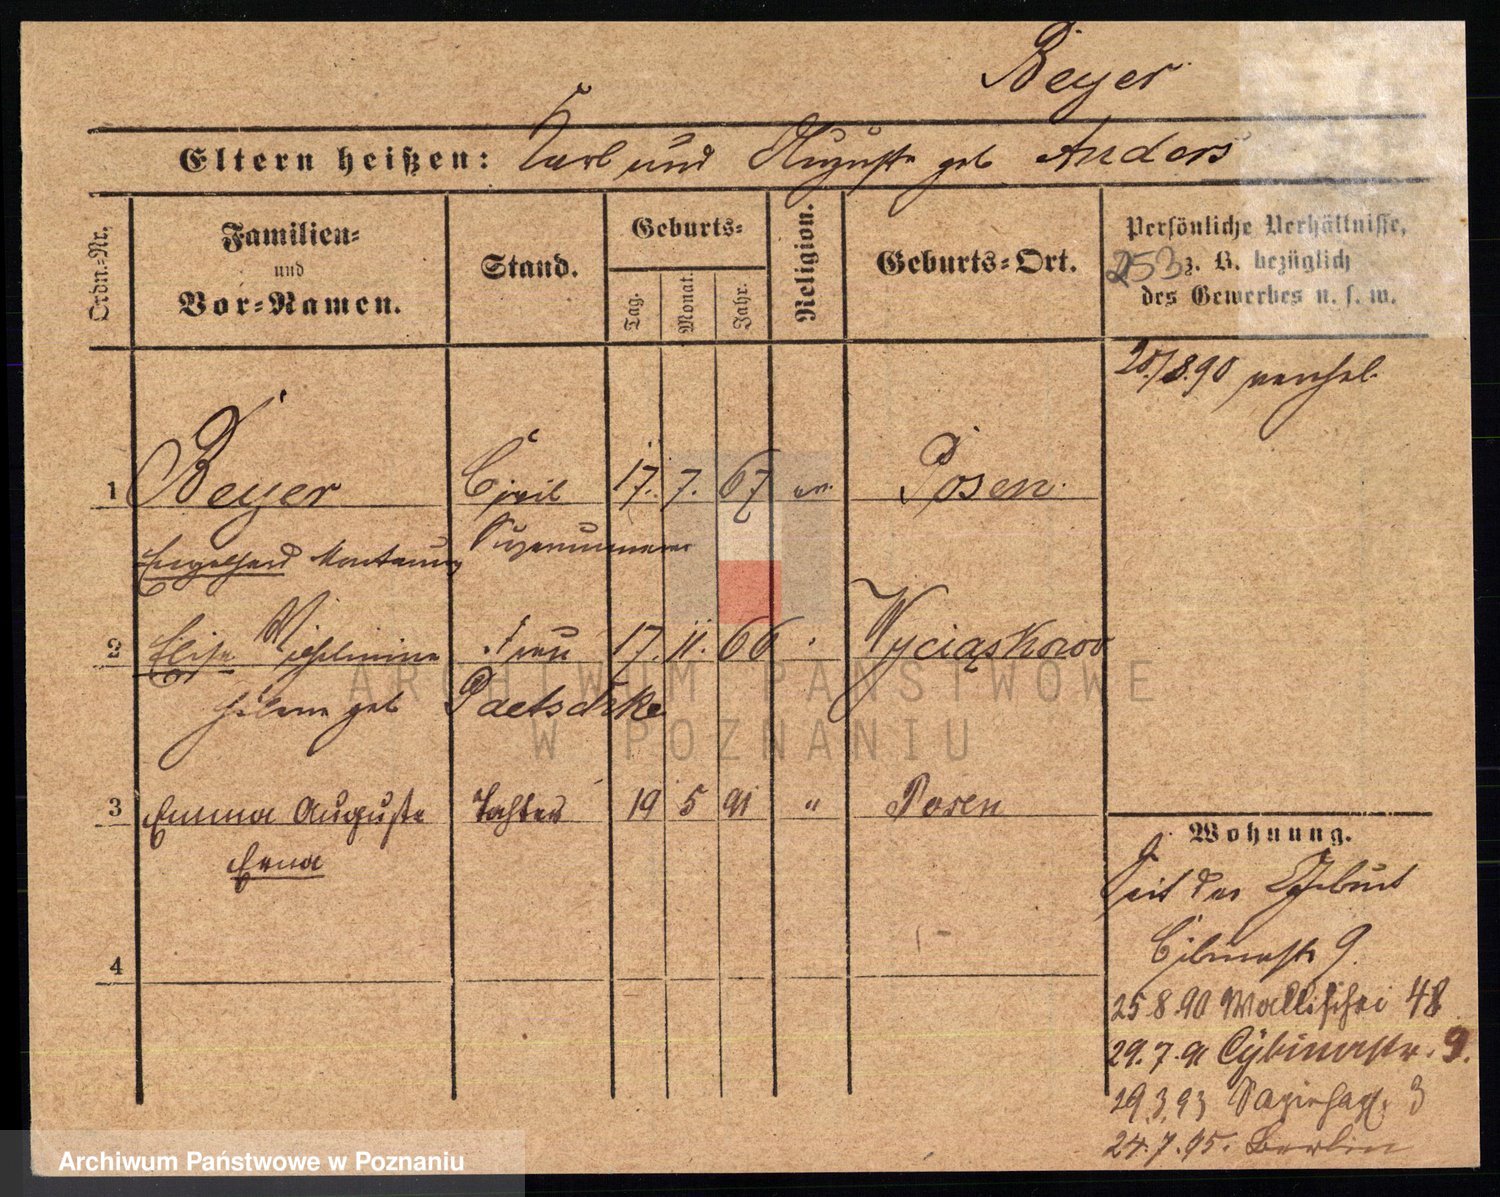 Beyer
Eltern heißen: Karl und Auguste geb Anders
Ordn.-Nr.
Familien-
und
Vor-Namen.
Stand.
Geburts-
Tag.
Monat.
Jahr.
Religion.
Geburts-Ort.
Persönliche Verhältnisse,
z. B. bezüglich
des Gewerbes u. s. w.
253
20/8.90 verehel.
1 Beyer Civil 17. 7. 67 ev. Posen
Engelhard Supernumerar
2 Elise Wilhelmine Frau 17. 11. 66 Wyciąskowo
Helene geb Paetschke
3 Emma Auguste Tochter 19 5 91 " Posen
Erna
4
Wohnung.
Seit der Geburt
Cybinastr 9.
25 8 90 Wallischei 48
29.7.91 Cybinastr. 9.
29.3.93 3
24.7.95. Berlin
ARCHIWUM PAŃSTWOWE
W POZNANIU
Archiwum Państwowe w Poznaniu